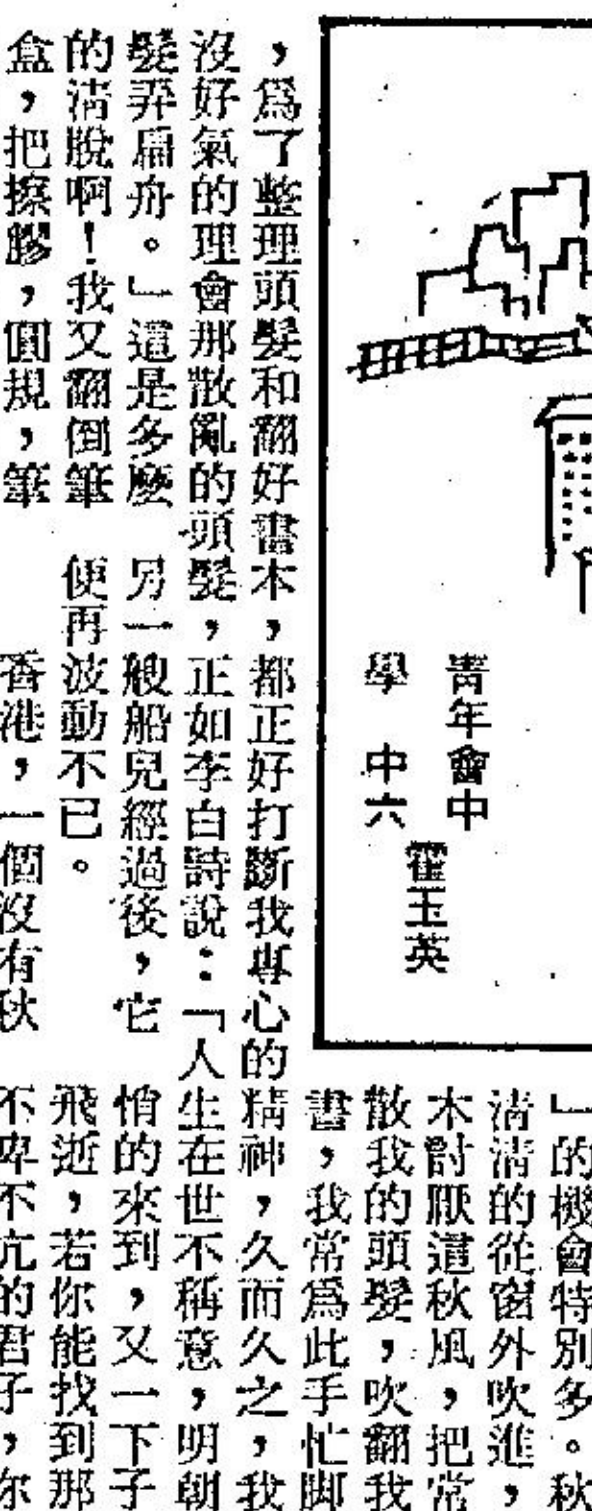 青年會中
學　中六
霍玉英
」的機會特別多。秋
清清的從窗外吹進，
木討厭這秋風，把常
散我的頭髮，吹翻我
書，我常爲此手忙脚
，爲了整理頭髮和翻好書本，都正好打斷我專心的精神，久而久之，我
沒好氣的理會那散亂的頭髮，正如李白詩說：「人生在世不稱意，明朝
髮弄扁舟。」這是多麽
的清脫啊！我又翻倒筆
盒，把擦膠，圓規，筆
另一艘船兒經過後，它
便再波動不已。
香港，一個沒有秋
悄的來到，又一下子
飛逝，若你能找到那
不卑不亢的君子，你